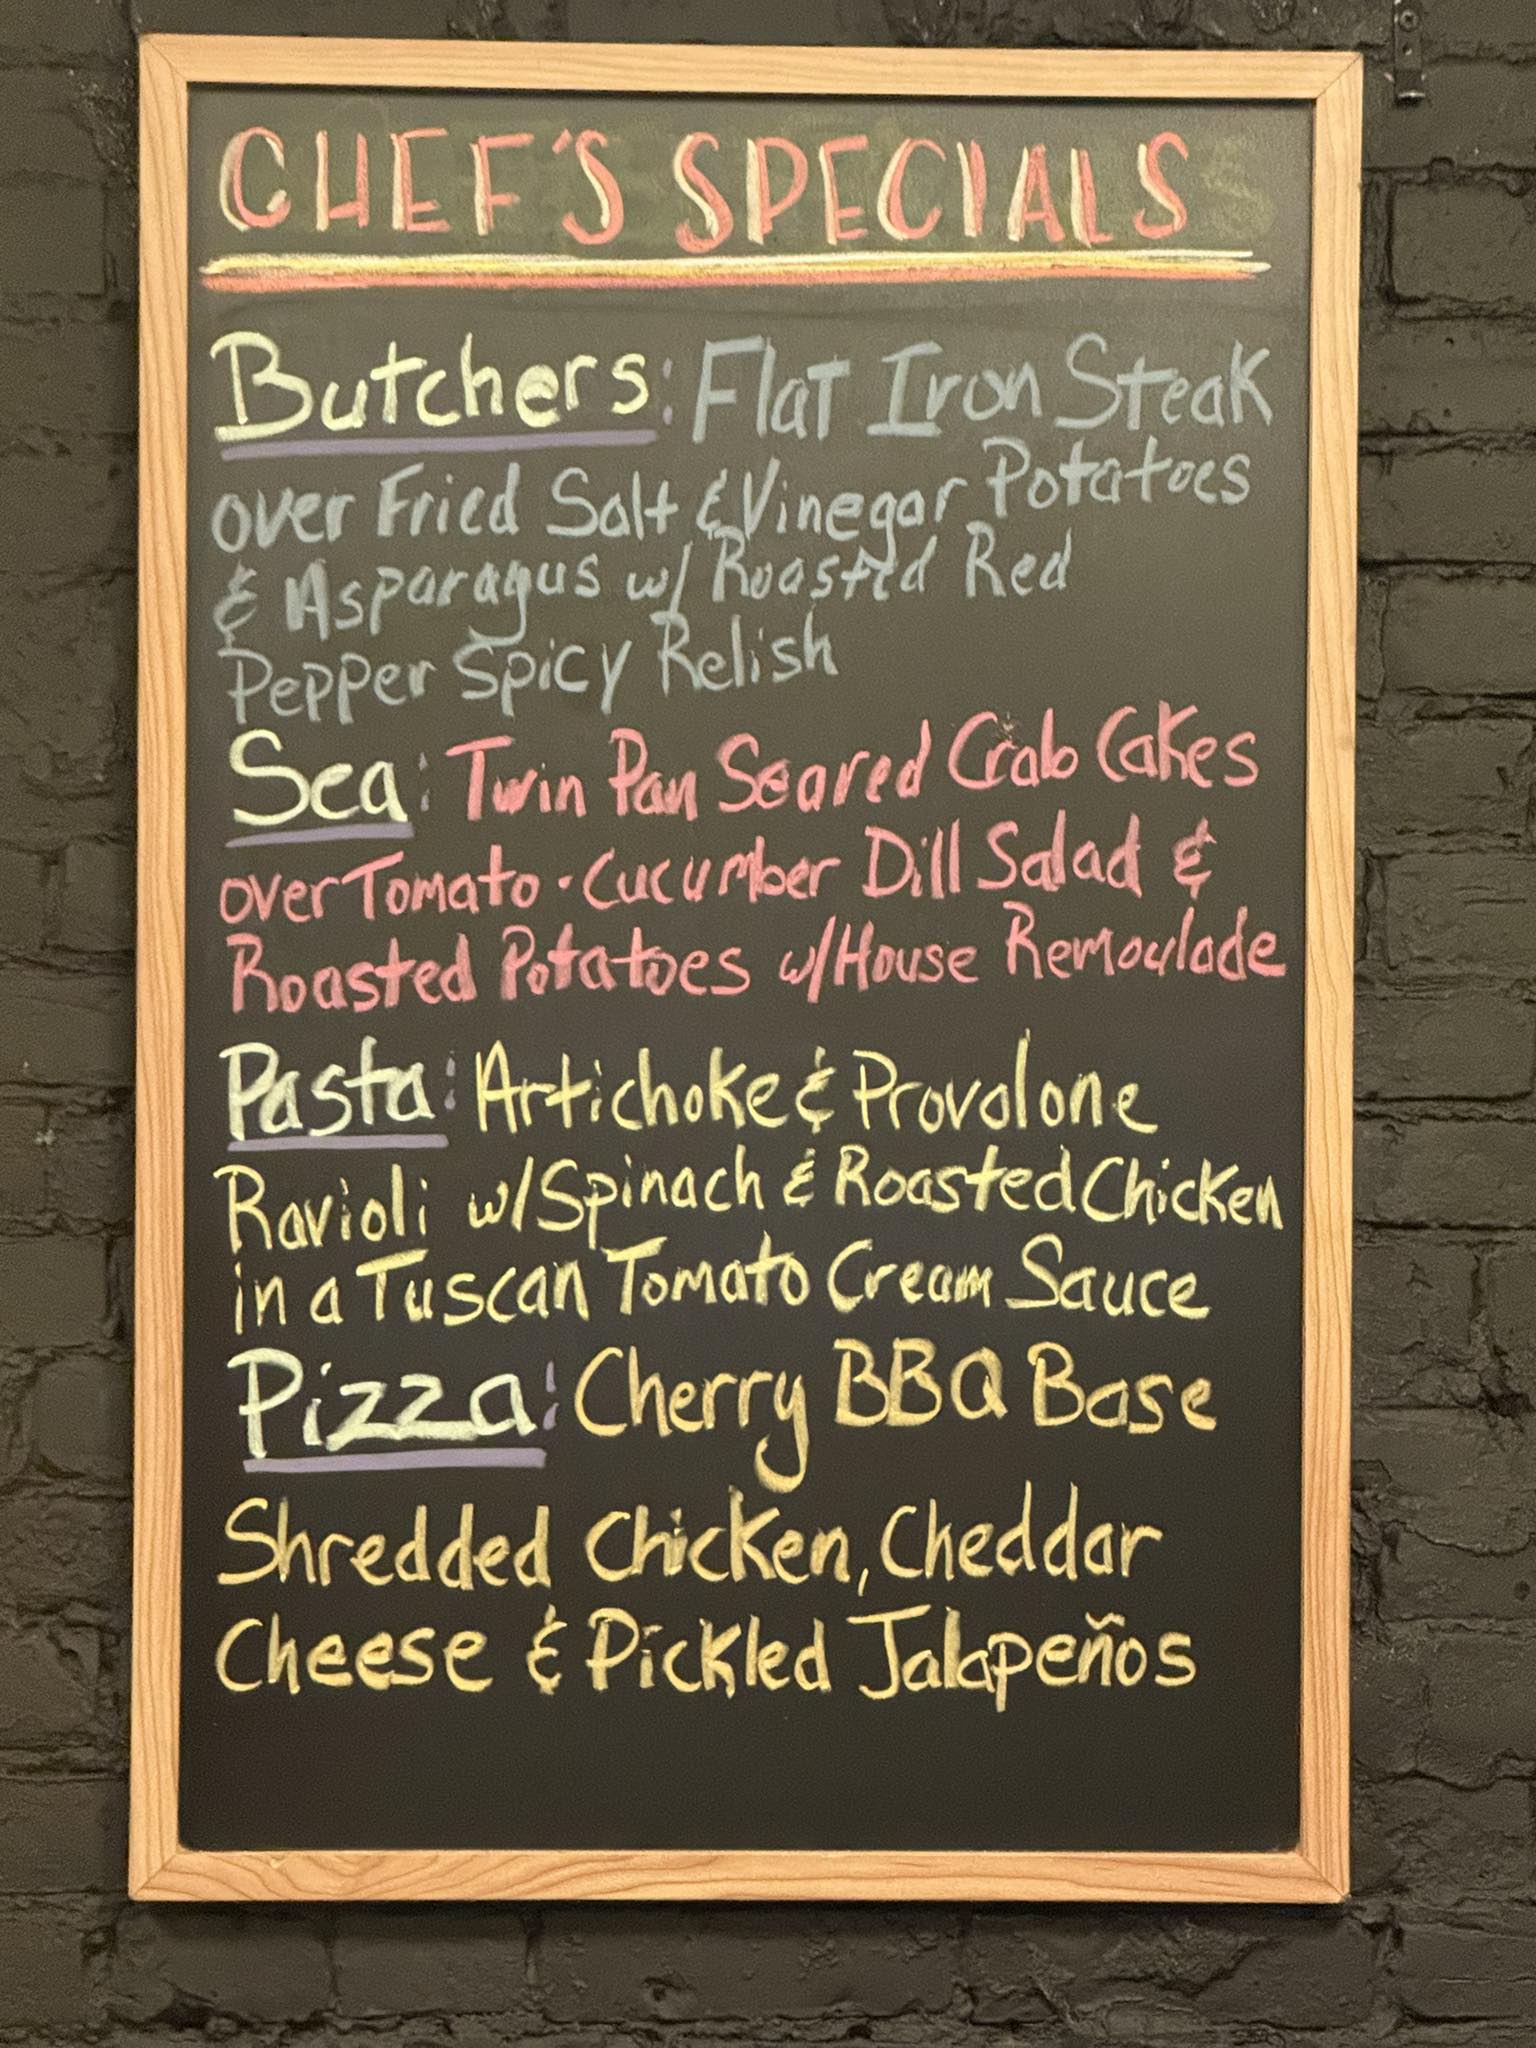 CHEF'S SPECIALS
Butchers: Flat Iron Steak
over Fried Salt & Vinegar Potatoes
& Asparagus w/ Roasted Red
Pepper Spicy Relish
Sea: Twin Pan Seared Crab Cakes
over Tomato-Cucumber Dill Salad &
Roasted Potatoes w/House Remoulade
Pasta: Artichoke & Provolone
Ravioli w/Spinach & Roasted Chicken
in a Tuscan Tomato Cream Sauce
Pizza: Cherry BBQ Base
Shredded Chicken, Cheddar
Cheese & Pickled Jalapeños